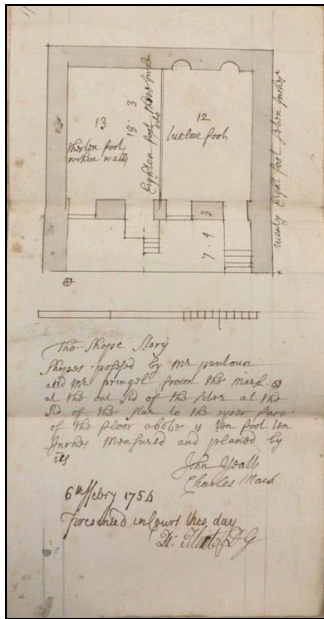 13
therten foot
within walls
Eighteen foot three Inch
18 . 3
12
twelve foot
7 . 4
3
twenty Eight foot Inches
The Shope Story
Shopes posesed by Mr
and Mr pringel from the mark
at the out Sid of the at the
Sid of the plan to the uper
of the floor above is ten foot ten
Inches Mesured and planed by
us
John Yeats
Charles Mack
6th febry 1754
presented in Court this day
D G